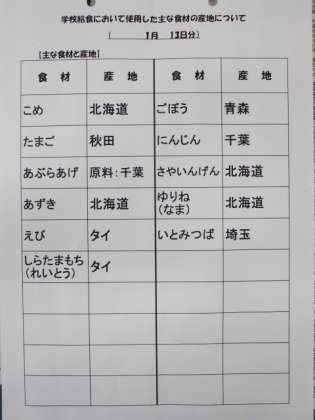 学校給食において使用した主な食材の産地について
(　1月　13日分)
【主な食材と産地】
食　材　産　地　食　材　産　地
こめ　北海道　ごぼう　青森
たまご　秋田　にんじん　千葉
あぶらあげ　原料：千葉　さやいんげん　北海道
あずき　北海道　ゆりね　北海道
(なま)
えび　タイ　いとみつば　埼玉
しらたまもち　タイ
(れいとう)